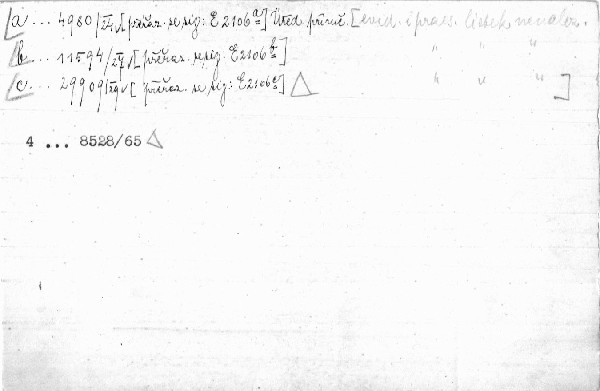 [a ... 4980/ [přeřaz. se sig: E2106a] Úřed. příruč. [evid. i prac. lístek nenalez.
b ... 11594/ [přeřaz. se sig: E2106b] " " "
c ... 29909/ [přeřaz. se sig: E2106c] " " " ]
4 ... 8528/65